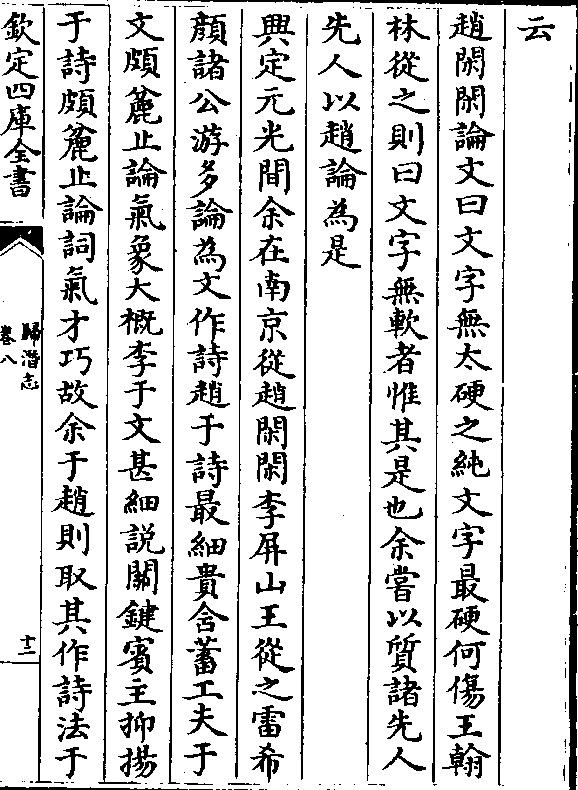 云
趙閑閑論文曰文字無太硬之純文字最硬何傷王翰
林從之則曰文字無軟者惟其是也余嘗以質諸先人
先人以趙論為是
興定元光間余在南京從趙閑閑李屏山王從之雷希
顔諸公游多論為文作詩趙于詩最細貴含蓄工夫于
文頗麄止論氣象大概李于文甚細説關鍵賔主抑揚
于詩頗麄止論詞氣才巧故余于趙則取其作詩法于
欽定四庫全書
歸潛志
卷八
十二